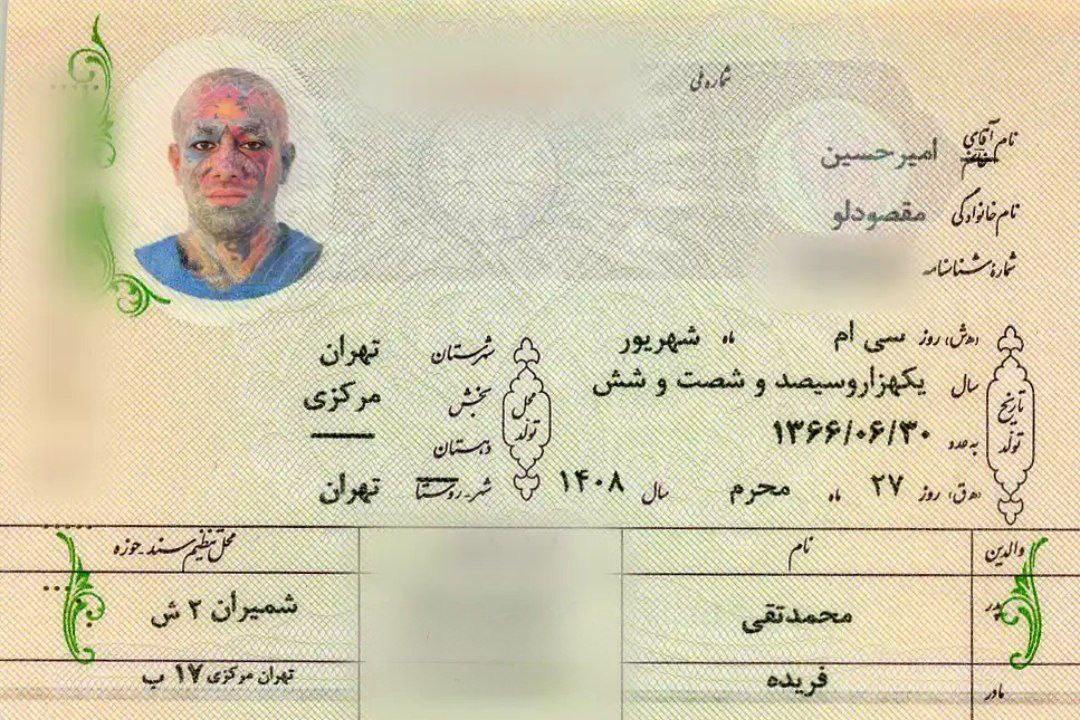 شماره ملی
نام آقای امیرحسین
نام خانوادگی مقصودلو
شمارهٔ شناسنامه
تاریخ تولد
(ه‍.ش) روز سی ام ماه شهریور
سال یکهزاروسیصد و شصت و شش
به عدد ۱۳۶۶/۰۶/۳۰
(ه‍.ق) روز ۲۷ ماه محرم سال ۱۴۰۸
محل تولد
شهرستان تهران
بخش مرکزی
دهستان ——
شهر-روستا تهران
والدین نام محل تنظیم سند-حوزه
پدر محمدتقی شمیران ۲ ش
مادر فریده تهران مرکزی ۱۷ ب